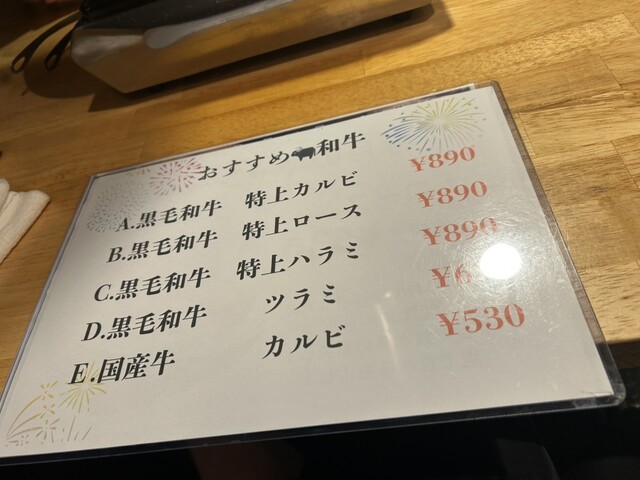 おすすめ和牛
A.黒毛和牛 特上カルビ ¥890
B.黒毛和牛 特上ロース ¥890
C.黒毛和牛 特上ハラミ ¥890
D.黒毛和牛 ツラミ
E.国産牛 カルビ ¥530